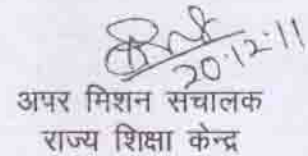 20.12.11
अपर मिशन संचालक
राज्य शिक्षा केन्द्र